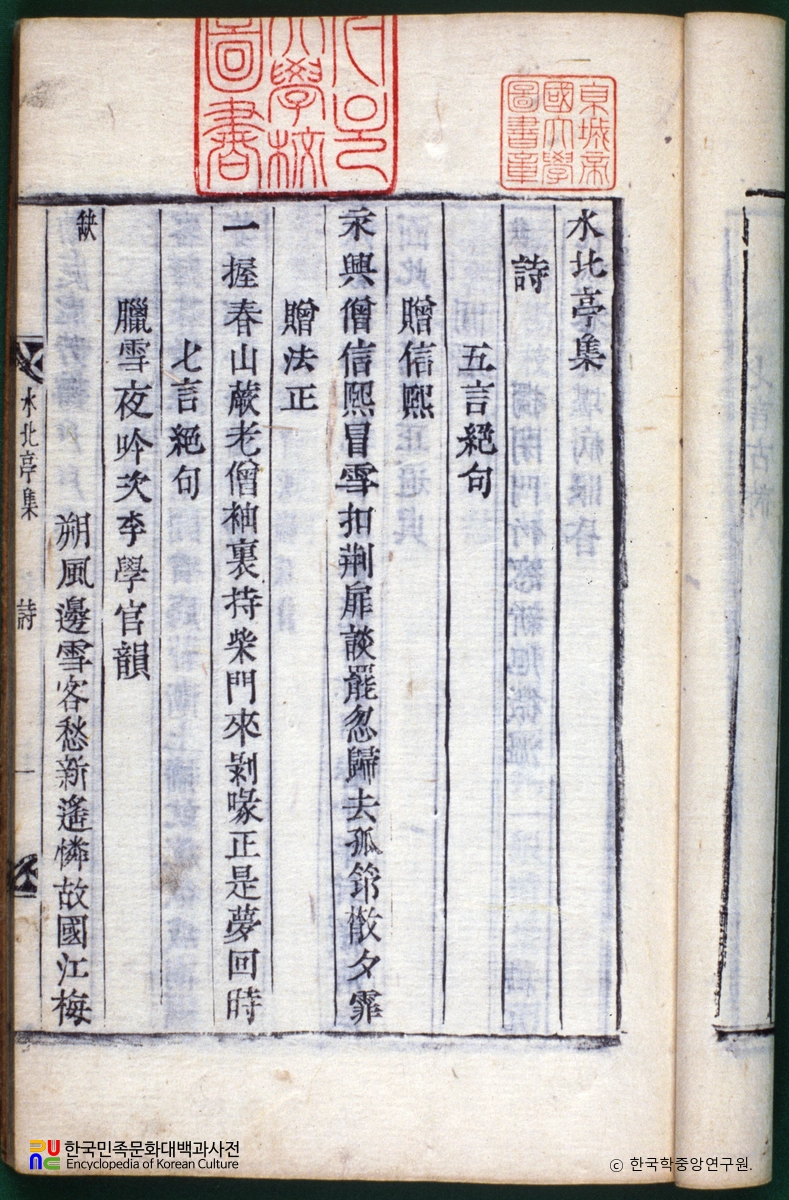 水北亭集
詩
五言絕句
贈信熙
永興僧信熙冒雪扣荆扉談罷忽歸去孤筇散夕霏
贈法正
一握春山蕨老僧袖裏持柴門來剝啄正是夢回時
七言絕句
臘雪夜吟次李學官韻
缺 朔風邊雪客愁新遙憐故國江梅
水北亭集 詩 一
京城帝
國大學
圖書章
大學校
圖書
한국민족문화대백과사전
Encyclopedia of Korean Culture
© 한국학중앙연구원.